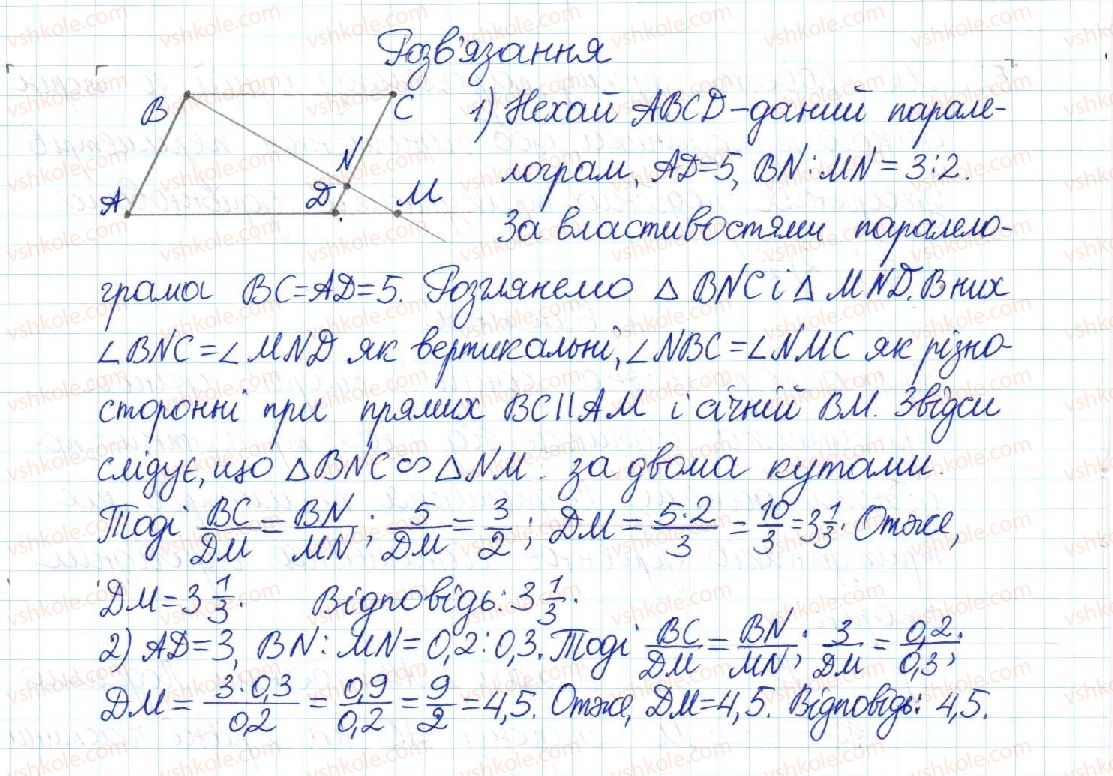 Розв'язання
B C N D M A
1) Нехай ABCD – даний парале-
лограм, AD=5, BN:MN=3:2.
За властивостями паралело-
грама BC=AD=5. Розглянемо △BNC і △MND. В них
∠BNC=∠MND як вертикальні, ∠NBC=∠NMC як різно-
сторонні при прямих BC||AM і січній BM. Звідси
слідує, що △BNC∽△NM. за двома кутами.
Тоді BC/DM = BN/MN; 5/DM = 3/2; DM = 5·2/3 = 10/3 = 3 1/3. Отже,
DM = 3 1/3. Відповідь: 3 1/3.
2) AD=3, BN:MN=0,2:0,3. Тоді BC/DM = BN/MN; 3/DM = 0,2/0,3;
DM = 3·0,3/0,2 = 0,9/0,2 = 9/2 = 4,5. Отже, DM=4,5. Відповідь: 4,5.
vshkole.com